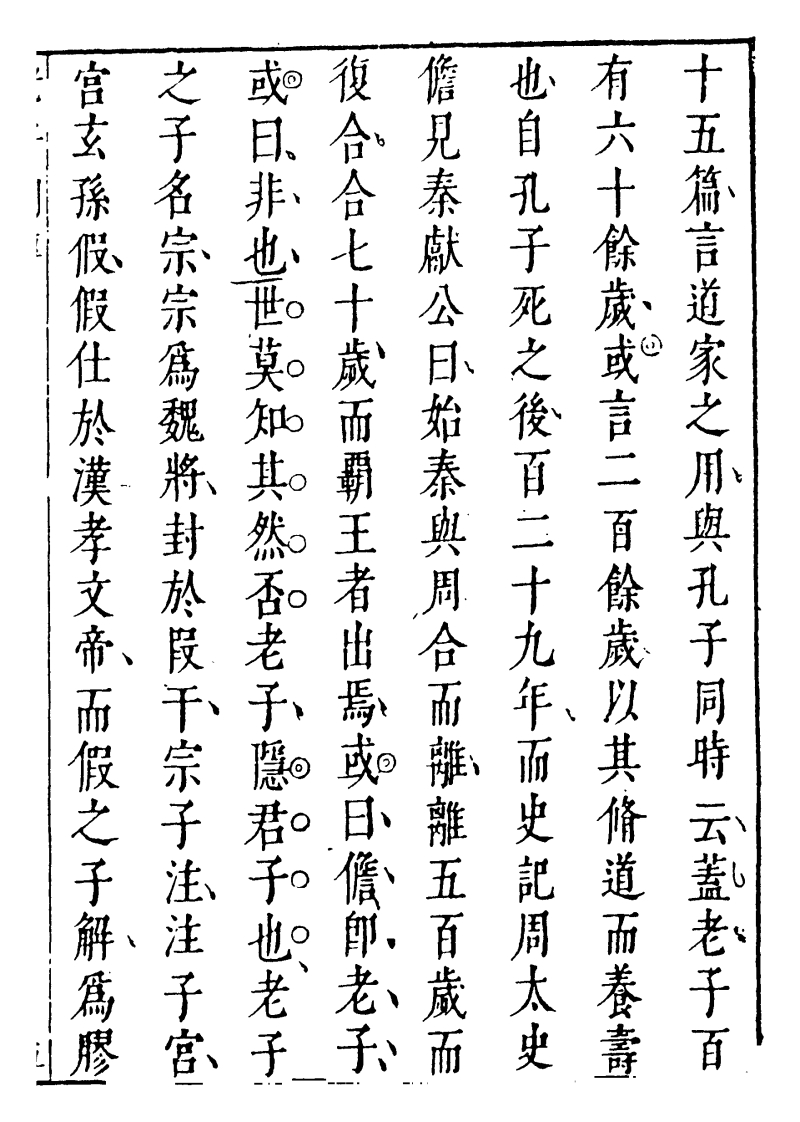 十五篇言道家之用與孔子同時云蓋老子百
有六十餘歲或言二百餘歲以其脩道而養壽
也自孔子死之後百二十九年而史記周太史
儋見秦獻公曰始秦與周合而離離五百歲而
復合合七十歲而霸王者出焉或曰儋卽老子
或曰非也世莫知其然否老子隱君子也老子
之子名宗宗爲魏將封於段干宗子注注子宮
宮玄孫假假仕於漢孝文帝而假之子解爲膠